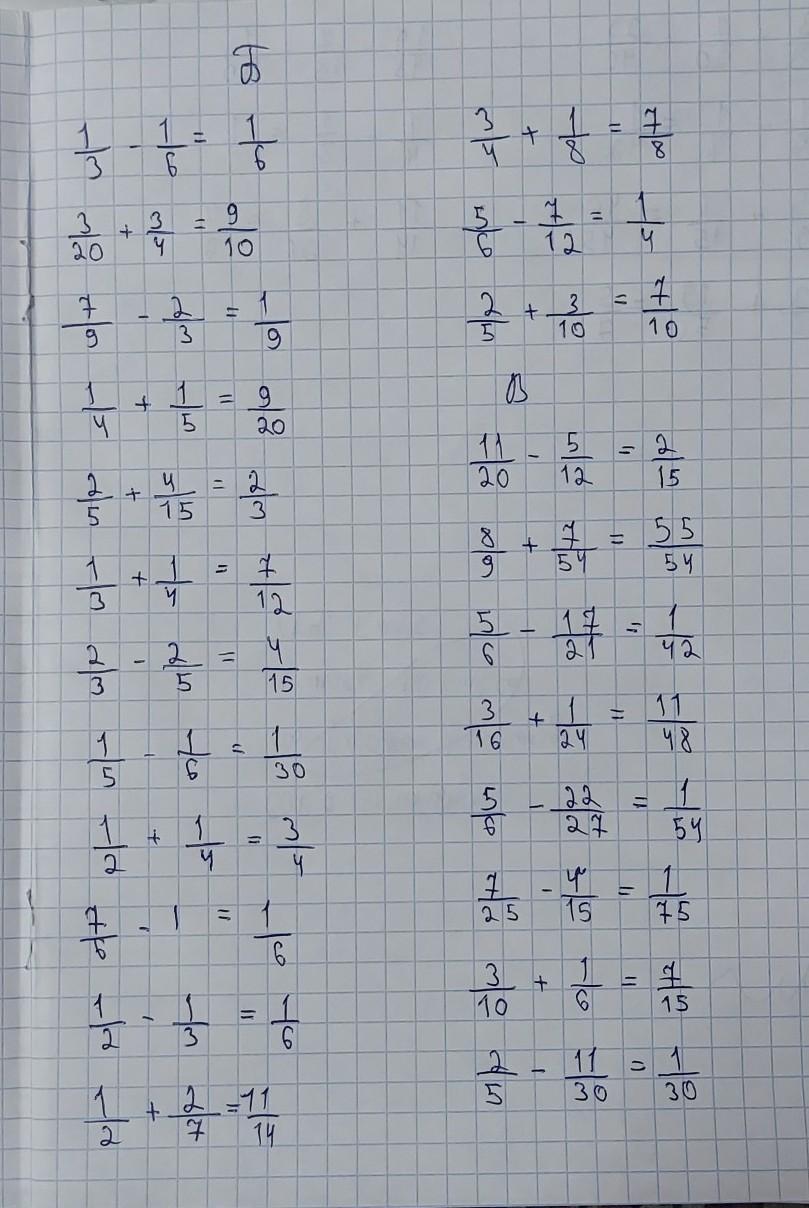 Б
1/3 - 1/6 = 1/6
3/20 + 3/4 = 9/10
7/9 - 2/3 = 1/9
1/4 + 1/5 = 9/20
2/5 + 4/15 = 2/3
1/3 + 1/4 = 7/12
2/3 - 2/5 = 4/15
1/5 - 1/6 = 1/30
1/2 + 1/4 = 3/4
7/6 - 1 = 1/6
1/2 - 1/3 = 1/6
1/2 + 2/7 = 11/14
3/4 + 1/8 = 7/8
5/6 - 7/12 = 1/4
2/5 + 3/10 = 7/10
В
11/20 - 5/12 = 2/15
8/9 + 7/54 = 55/54
5/6 - 17/21 = 1/42
3/16 + 1/24 = 11/48
5/6 - 22/27 = 1/54
7/25 - 4/15 = 1/75
3/10 + 1/6 = 7/15
2/5 - 11/30 = 1/30